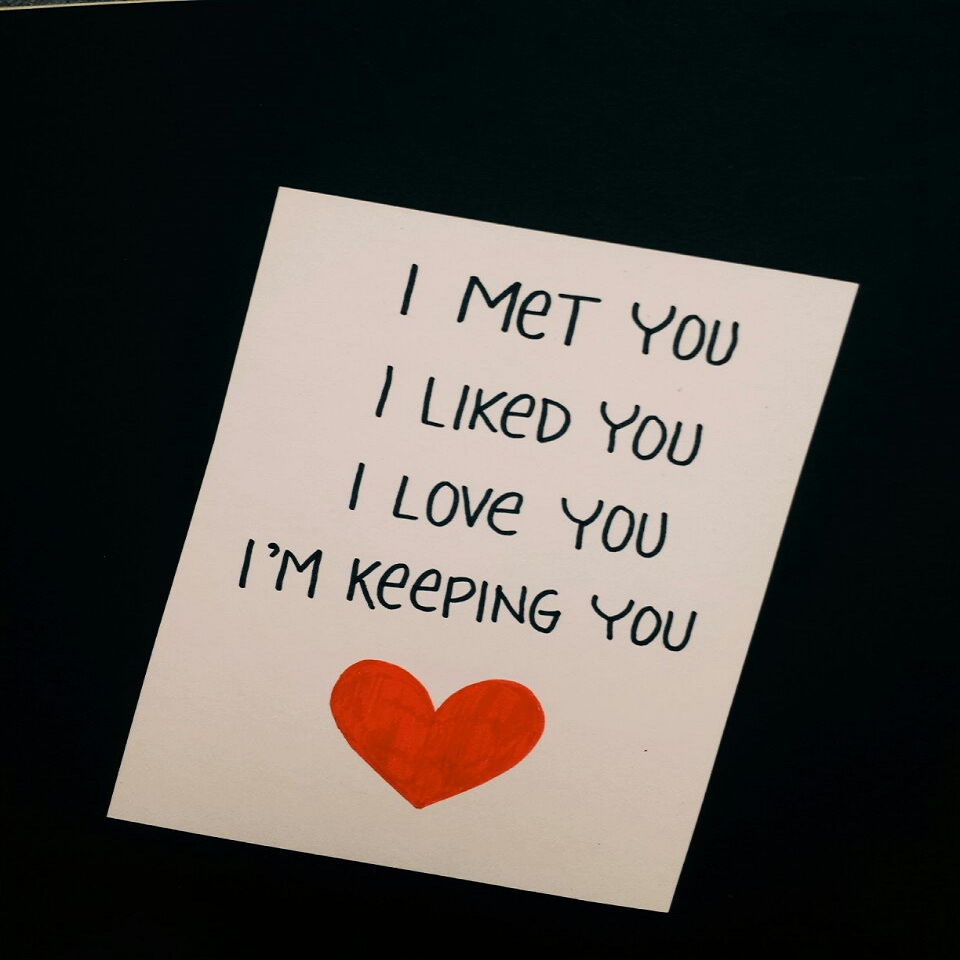 I MeT YOU
I LIKeD YOU
I LOVe YOU
I'M KeePING YOU